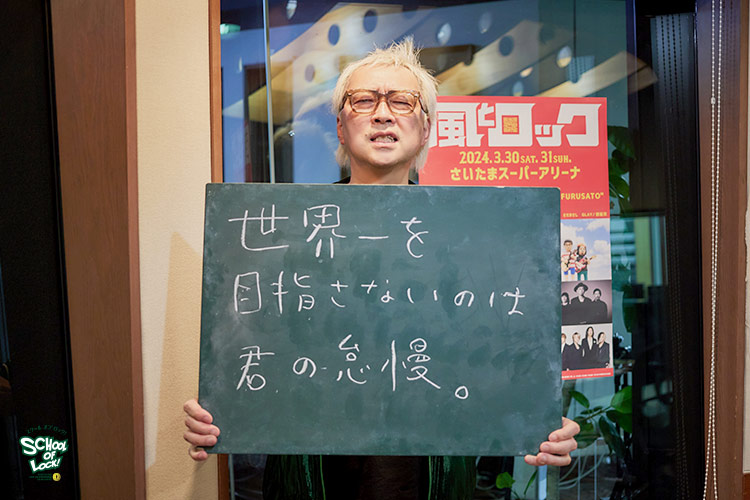 世界一を
目指さないのは
君の怠慢。
風とロック
2024.3.30 SAT. 31 SUN.
さいたまスーパーアリーナ
FURUSATO"
SCHOOL
OF
LOCK!